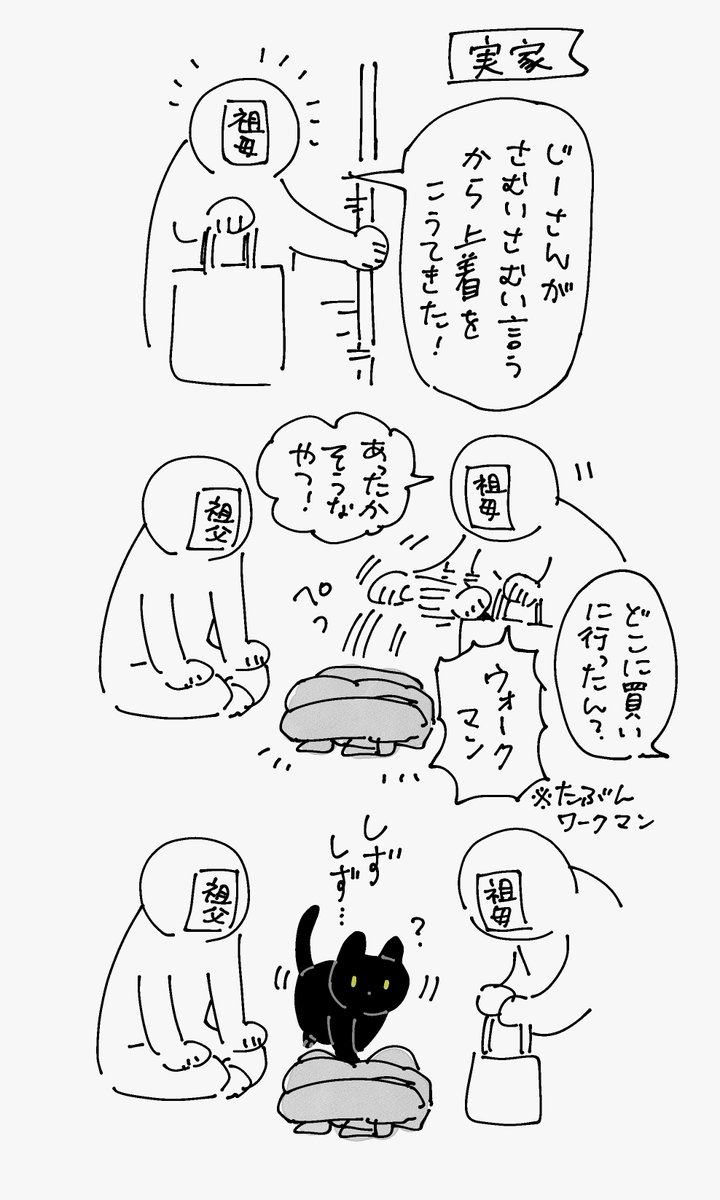 実家
祖母
じーさんが
さむいさむい言う
から上着を
こうてきた!
祖母
あったか
そうな
やつ!
祖父
ペっ
どこに買い
に行ったん?
ウォーク
マン
※たぶん
ワークマン
しず
しず…
?
祖母
祖父